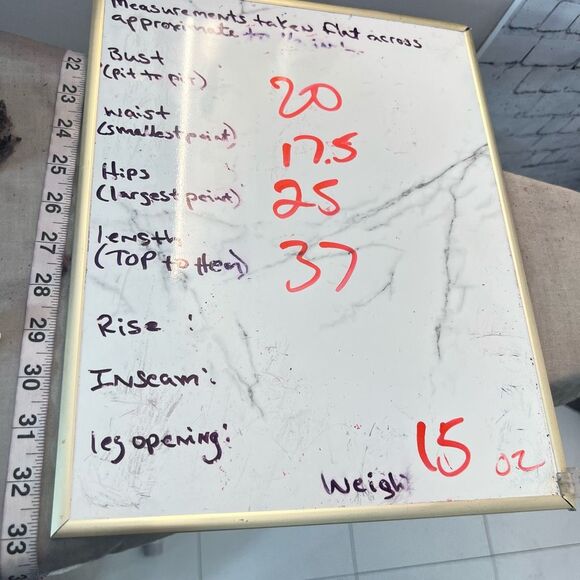 Measurements taken flat across
approximate to
Bust
(pit to pit)
20
waist
(smallest point)
17.5
Hips
(largest point)
25
length
(TOP to Hem)
37
Rise :
Inseam:
leg opening:
Weigh
15 oz
22
23
24
25
26
27
28
29
30
31
32
33